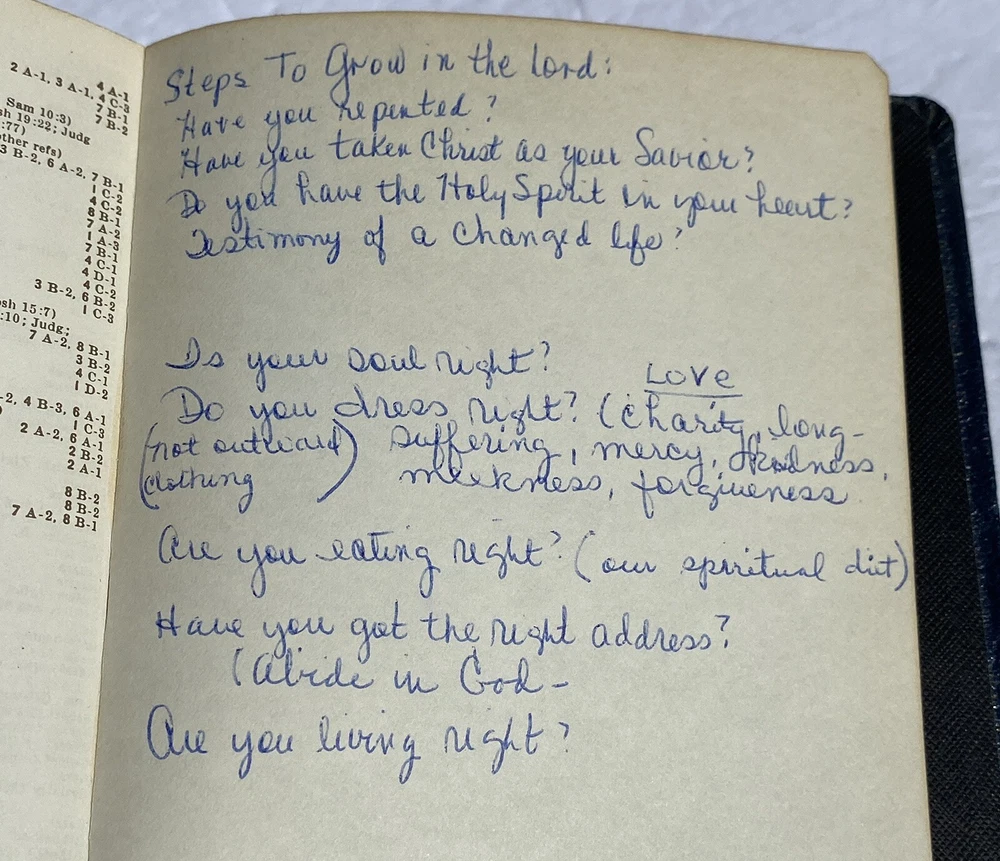 4 A-1
2 A-1, 3 A-1, 4 C-3
7 B-1
Sam 10:3) 7 B-2
sh 19:22; Judg
:77)
other refs)
3 B-2, 6 A-2, 7 B-1
1 C-2
4 C-2
8 B-1
7 A-2
1 A-3
7 B-1
4 C-1
4 D-1
4 C-2
3 B-2, 6 B-2
1 C-3
osh 15:7)
:10; Judg;
7 A-2, 8 B-1
3 B-2
4 C-1
1 D-2
-2, 4 B-3, 6 A-1
) 1 C-3
2 A-2, 6 A-1
2 B-2
2 A-1
8 B-2
8 B-2
7 A-2, 8 B-1
Steps To Grow in the Lord:
Have you repented?
Have you taken Christ as your Savior?
Do you have the Holy Spirit in your heart?
Testimony of a changed life?
Is your soul right?
LOVE
Do you dress right? (charity, long-
(not outward) suffering, mercy, kindness,
(clothing ) meekness, forgiveness
Are you eating right? (our spiritual diet)
Have you got the right address?
(Abide in God -
Are you living right?